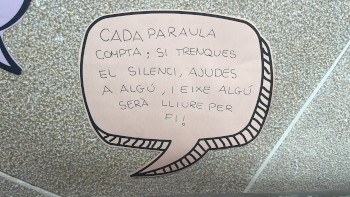 CADA PARAULA
COMPTA; SI TRENQUES
EL SILENCI, AJUDES
A ALGÚ, I EIXE ALGÚ
SERÀ LLIURE PER
FI!